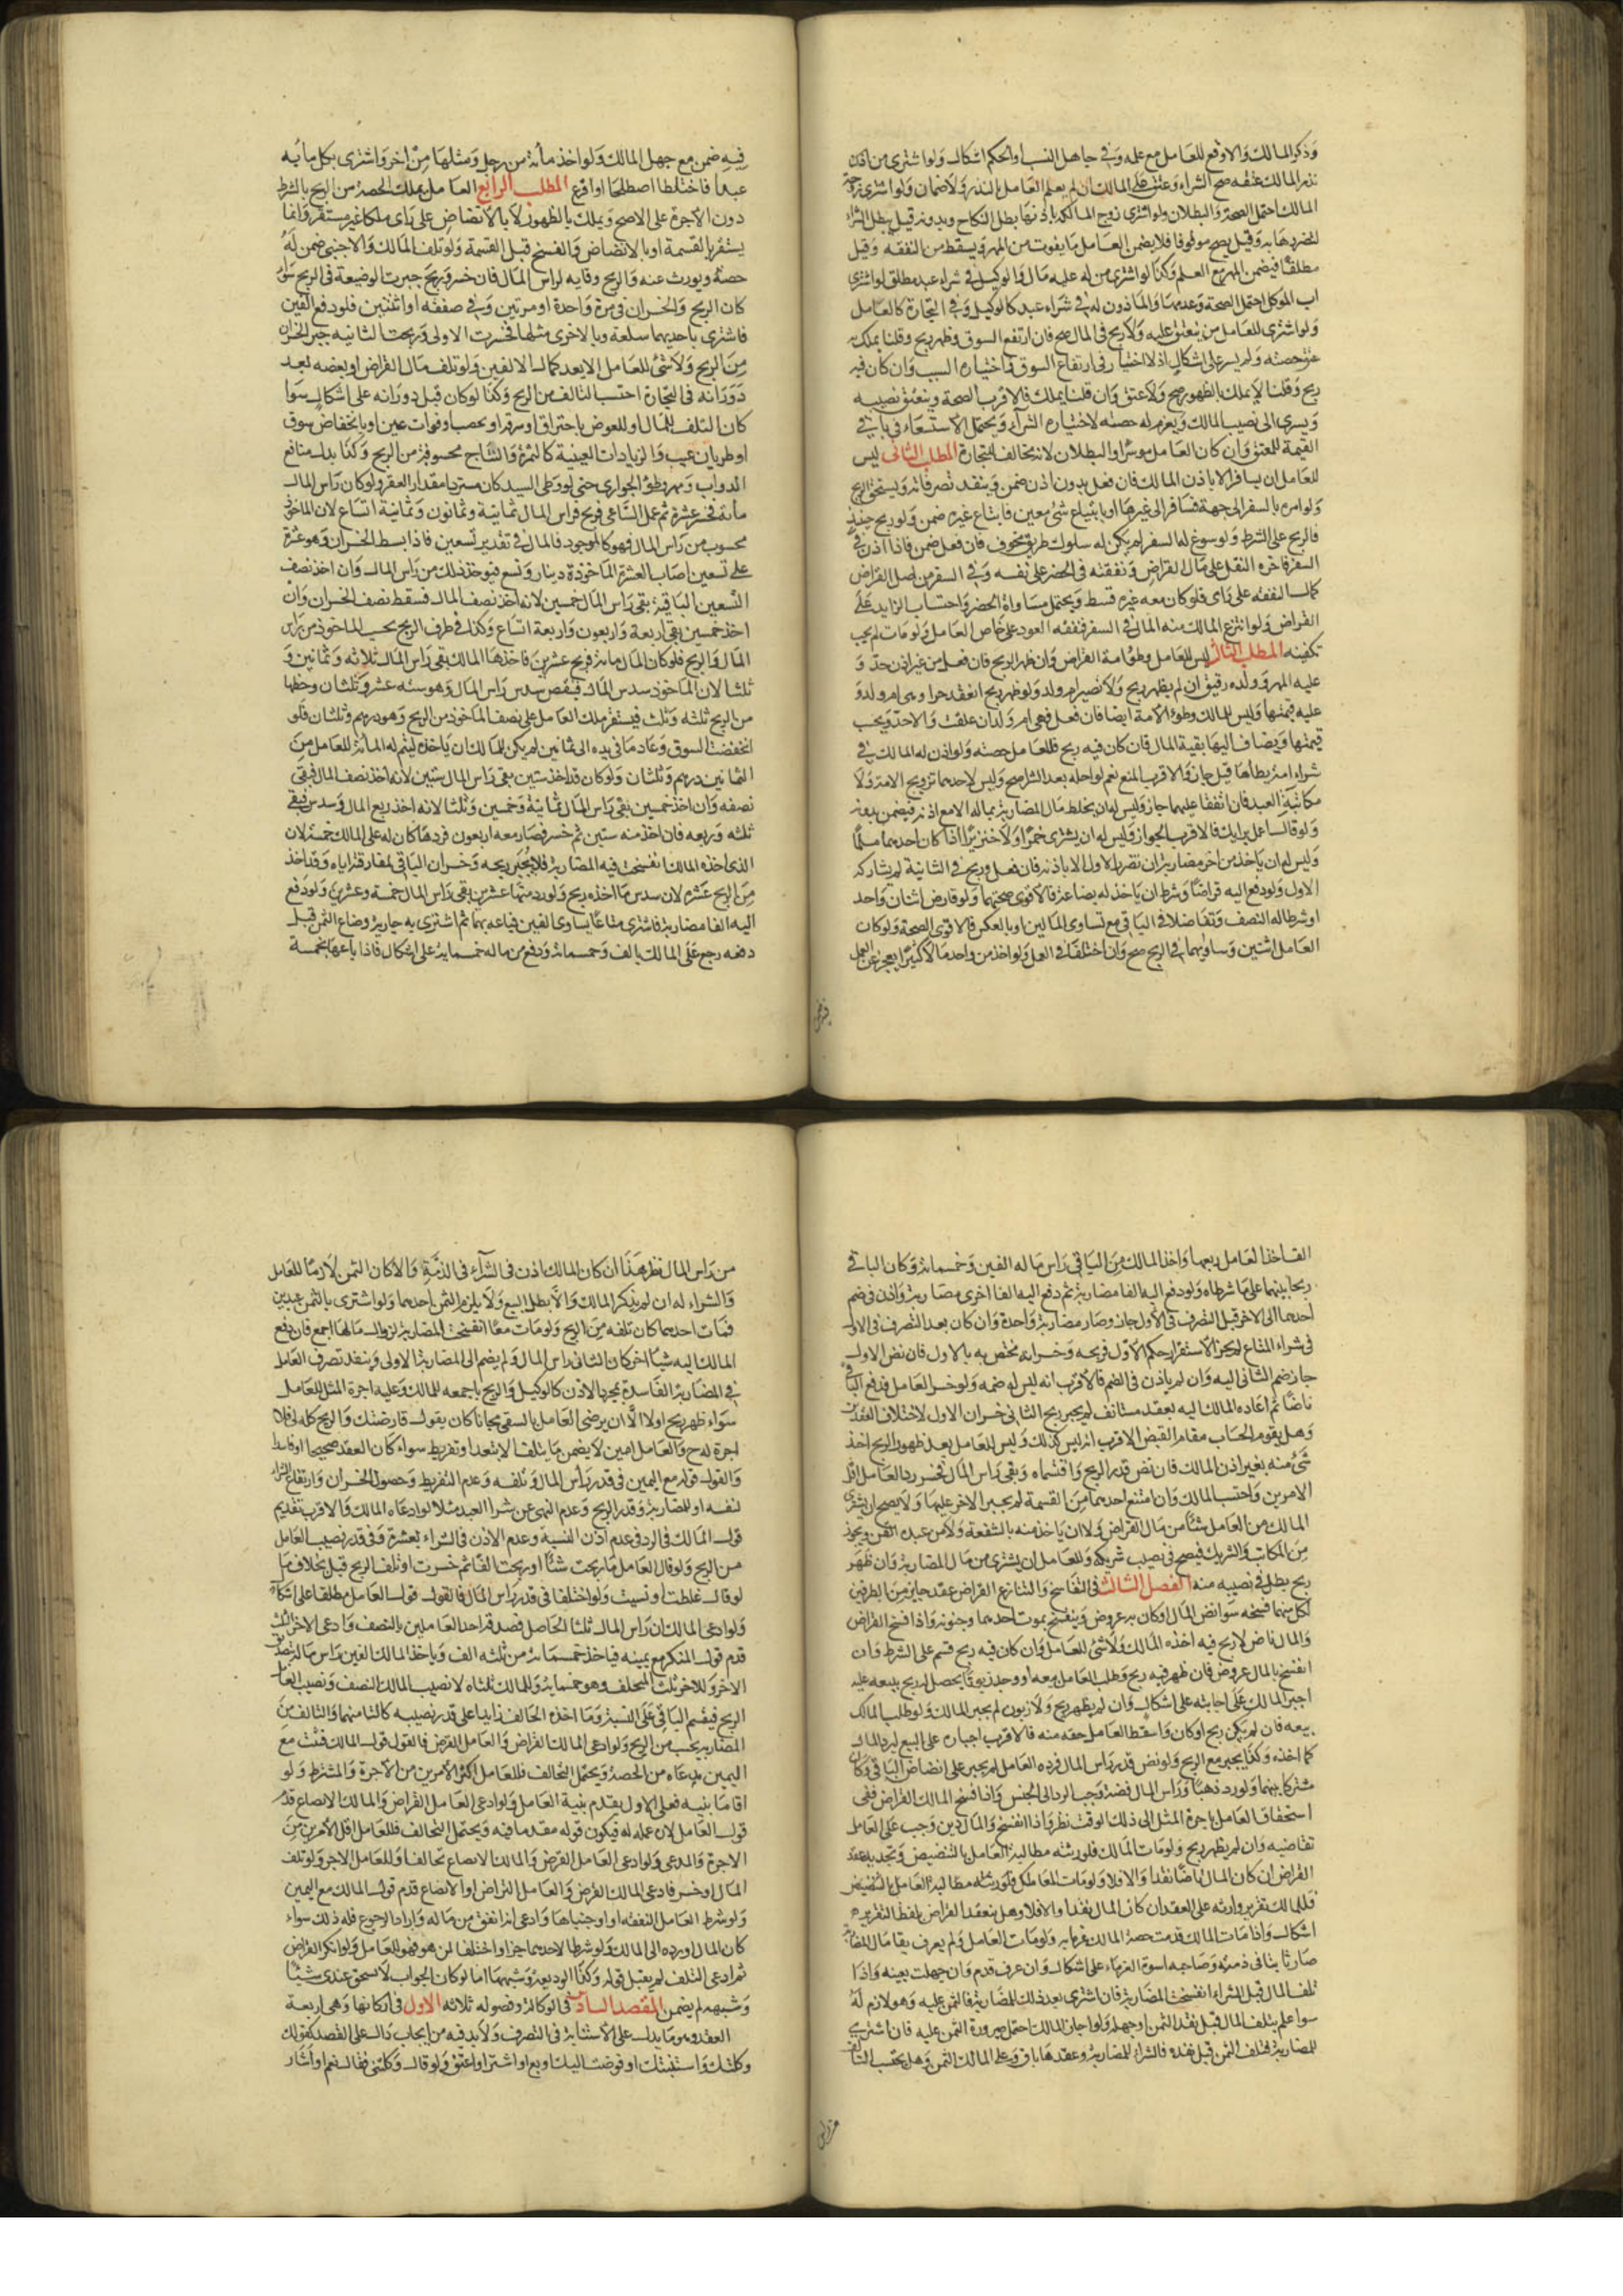 وذكر المالك والا وقع للعامل مع علمه وفي جاهل النسب او الحكم اشكال ولو اشترى من
نذر المالك عتقه صح الشراء وعتق على المالك ان لم يعلم العامل بالنذر ولا ضمان ولو اشترى زوجة
المالك احتمل الصحة والبطلان ولو اشترى زوج المالكة باذنها بطل النكاح وبدونه قيل يبطل الشراء
لتضررها به وقيل يصح موقوفا فلا يضمن العامل ما يفوت من المهر ويسقط من النفقة وقيل
مطلقا فيضمن المهر مع العلم وكذا لو اشترى من له عليه مال والوكيل في شراء عبد مطلق لو اشترى
اب الموكل احتمل الصحة وعدمها والماذون له في شراء عبد كالوكيل وفي التجارة كالعامل
ولو اشترى للعامل من ينعتق عليه ولا ربح في المال صح فان ارتفع السوق وظهر ربح وقلنا يملك به
عتق حصته ولم يسر على اشكال اذ لا اختيار في ارتفاع السوق واختياره السبب وان كان فيه
ربح وقلنا لا يملك بالظهور صح ولا عتق وان قلنا يملك فالاقرب الصحة وينعتق نصيبه
ويسرى الى نصيب المالك ويغرم له حصته لاختياره الشراء ويحتمل الاستسعاء في باقي
القيمة للمعتق وان كان العامل موسرا والبطلان لانه مخالف للتجارة المطلب الثاني ليس
للعامل ان يسافر الا باذن المالك فان فعل بدون اذن ضمن وينفذ تصرفاته ويستحق الربح
ولو امره بالسفر الى جهة فسافر الى غيرها او بابتياع شئ معين فابتاع غيره ضمن ولو ربح حينئذ
فالربح على الشرط ولو سوغ له السفر لم يكن له سلوك طريق مخوف فان فعل ضمن فاذا اذن في
السفر فاجرة النقل على مال القراض ونفقته في الحضر على نفسه وفي السفر من اصل القراض
كمال النفقة على راى فلو كان معه غيره قسط ويحتمل مساواة الحضر واحتساب الزايد على
القراض ولو انتزع المالك منه المال في السفر فنفقة العود على خاص العامل ولو مات لم يجب
تكفينه المطلب الثالث ليس للعامل وطؤ امة القراض وان ظهر الربح فان فعل من غير اذن حد و
عليه المهر وولده رقيق ان لم يظهر ربح ولا تصير ام ولد ولو ظهر ربح انعقد حرا وهي ام ولد و
عليه قيمتها وليس للمالك وطؤ الامة ايضا فان فعل فهي ام ولد ان علقت ولا حد ويحسب
قيمتها ويضاف اليها بقية المال فان كان فيه ربح فللعامل حصته ولو اذن له المالك في
شراء امة يطأها قيل جاز والاقرب المنع نعم لو احله بعد الشرا صح وليس لاحدهما تزويج الامة ولا
مكاتبة العبد فان اتفقا عليهما جاز وليس له ان يخلط مال المضاربة بماله الا مع اذنه فيضمن بدونه
ولو قال اعمل برايك فالاقرب الجواز وليس له ان يشترى خمرا ولا خنزيرا اذا كان احدهما مسلما
وليس له ان ياخذ من اخر مضاربة ان تضرر الاول الا باذنه فان فعل وربح في الثانية لم يشاركه
الاول ولو دفع اليه قراضا وشرط ان ياخذ له بضاعة فالاقوى صحتهما ولو قارض اثنان واحد
او شرطا له النصف وتفاضلا في الباقي مع تساوى المالين او بالعكس فالاقوى الصحة ولو كان
العامل اثنين وساواهما في الربح صح وان اختلفا في العمل ولو اخذ من واحد مالا كثيرا يعجز عن العمل
فيه ضمن
فيه ضمن مع جهل المالك ولو اخذ مأة من رجل ومثلها من اخر واشترى بكل مأة
عبدا فاختلطا اصطلحا او اقرع المطلب الرابع العامل يملك الحصة من الربح بالشرط
دون الاجرة على الاصح ويملك بالظهور لا بالانضاض على راى ملكا غير مستقر وانما
يستقر بالقسمة او بالانضاض والفسخ قبل القسمة ولو تلف المالك والاجنبي ضمن له
حصته ويورث عنه والربح وقاية لراس المال فان خسر وربح جبرت الوضيعة في الربح سواء
كان الربح والخسران في مرة واحدة او مرتين وفي صفقة او اثنتين فلو دفع الفين
فاشترى باحديهما سلعة وبالاخرى مثلها فخسرت الاولى وربحت الثانية جبر الخسران
من الربح ولا شئ للعامل الا بعد كمال الالفين ولو تلف مال القراض او بعضه بعد
دورانه في التجارة احتسب التالف من الربح وكذا لو كان قبل دورانه على اشكال سواء
كان التلف للمال او للعوض باحتراق او سرقة او نهب او فوات عين او بانخفاض سوق
او طريان عيب والزيادات العينية كالثمرة والنتاج محسوبة من الربح وكذا بدل منافع
الدواب ومهر وطؤ الجوارى حتى لو وطى السيد كان مستردا مقدار العقر ولو كان راس المال
مأة فخسر عشرة ثم عمل الساعي فربح فراس المال ثمانية وثمانون وثمانية اتساع لان الماخوذ
محسوب من راس المال فهو كالموجود فالمال في تقدير تسعين فاذا بسط الخسران وهو عشرة
على تسعين اصاب العشرة الماخوذة دينار وتسع فيؤخذ ذلك من راس المال وان اخذ نصف
التسعين الباقية بقى راس المال خمسين لانه اخذ نصف المال فسقط نصف الخسران وان
اخذ خمسين بقى اربعة واربعون واربعة اتساع وكذا في طرف الربح يحسب الماخوذ من راس
المال والربح فلو كان المال مأة فربح عشرين فاخذها المالك بقى راس المال ثلاثة وثمانين و
ثلثا لان الماخوذ سدس المال فنقص سدس راس المال وهو ستة عشر وثلثان وحظها
من الربح ثلثة وثلث فيستقر ملك العامل على نصف الماخوذ من الربح وهو درهم وثلثان فلو
انخفضت السوق وعاد ما في يده الى ثمانين لم يكن للمالك ان ياخذه ليتم له المأة للعامل من
الثمانين درهم وثلثان ولو كان قد اخذ ستين بقى راس المال ستين لانه اخذ نصف المال فبقى
نصفه وان اخذ خمسين بقى راس المال ثمانية وخمسين وثلثا لانه اخذ ربع المال وسدس فبقى
ثلثه وربعه فان اخذ منه ستين ثم خسر فصار معه اربعون فردها كان له على المالك خمسة لان
الذى اخذه المالك انفسخت فيه المضاربة فلا يجبر بربحه وخسران الباقي لمفارقته اياه وقد اخذ
من الربح عشرة لان سدس ما اخذه ربح ولو رد منهما عشرين بقى راس المال خمسة وعشرين ولو دفع
اليه الفا مضاربة فاشترى متاعا يساوى الفين فباعه بهما ثم اشترى به جارية وضاع الثمن قبل
دفعه رجع على المالك بالف وخمسمائة ودفع من ماله خمسمائة على اشكال فاذا باعها بخمسة
الف اخذ العامل ربعها واخذ المالك من الباقي راس ماله الفين وخمسمائة وكان الباقي
ربحا بينهما على ما شرطاه ولو دفع اليه الفا مضاربة ثم دفع اليه الفا اخرى مضاربة واذن في ضم
احدهما الى الاخر قبل التصرف في الاول جاز وصار مضاربة واحدة وان كان بعد التصرف في الاول
في شراء المتاع لم يجز لاستقرار حكم الاول فربحه وخسرانه مختص به بالاول فان نض الاول
جاز ضم الثاني اليه وان لم ياذن في الضم فالاقرب انه ليس له ضمه ولو خسر العامل فدفع الباقي
ناضا ثم اعاده المالك اليه بعقد مستانف لم يجبر بربح الثاني خسران الاول لاختلاف العقدين
وهل يقوم الحساب مقام القبض الاقرب انه ليس كذلك وليس للعامل بعد ظهور الربح اخذ
شئ منه بغير اذن المالك فان نض قدر الربح واقتسماه وبقى راس المال فخسر رد العامل اقل
الامرين واحتسب المالك وان امتنع احدهما من القسمة لم يجبر الاخر عليها ولا يصح ان يشترى
المالك من العامل شيئا من مال القراض ولا ان ياخذ منه بالشفعة ولا من عبده القن ويجوز
من المكاتب والشريك فيصح في نصيب شريكه وللعامل ان يشترى من مال المضاربة وان ظهر
ربح بطل في نصيبه منه الفصل الثالث في التفاسخ والتنازع القراض عقد جايز من الطرفين
لكل منهما فسخه سواء نض المال او كان به عروض وينفسخ بموت احدهما وجنونه واذا فسخ القراض
والمال ناض لا ربح فيه اخذه المالك ولا شئ للعامل وان كان فيه ربح قسم على الشرط وان
انفسخ بالمال عروض فان ظهر فيه ربح وطلب العامل بيعه او وجد زبونا يحصل له ربح ببيعه عليه
اجبر المالك على اجابته على اشكال وان لم يظهر ربح ولا زبون لم يجبر المالك ولو طلب المالك
بيعه فان لم يكن ربح او كان واسقط العامل حقه منه فالاقرب اجباره على البيع ليرد المال
كما اخذه وكذا يجبر مع الربح ولو نض قدر راس المال فرده العامل لم يجبر على انضاض الباقي وكان
مشتركا بينهما ولو رد ذهبا وراس المال فضة وجب الرد الى الجنس واذا فسخ المالك القراض ففي
استحقاق العامل اجرة المثل الى ذلك الوقت نظر واذا انفسخ والمال دين وجب على العامل
تقاضيه وان لم يظهر ربح ولو مات المالك فلورثته مطالبة العامل بالتنضيض وتجديد عقد
القراض ان كان المال ناضا نقدا والا فلا ولو مات العامل فلورثته مطالبة بالتنضيض
فللمالك تقرير وارثه على العقد ان كان المال نقدا والا فلا وهل ينعقد القراض بلفظ التقرير
اشكال واذا مات المالك قدمت حصة المالك على غرمائه ولو مات العامل ولم يعرف بقاء مال المضاربة
صار ثابتا في ذمته وصاحبه اسوة الغرماء على اشكال وان عرف قدم وان جهلت بعينه واذا
تلف المال قبل الشراء انفسخت المضاربة فان اشترى بعد ذلك للمضاربة فالثمن عليه وهو لازم له
سواء علم بتلف المال قبل نقد الثمن او جهله ولو اجاز المالك احتمل صيرورة الثمن عليه فان اشترى
للمضاربة فتلف الثمن قبل نقده فالشراء للمضاربة وعقدها باق وعلى المالك الثمن وهل يحتسب التالف
من راس
من راس المال نظر هذا ان كان المالك اذن في الشراء في الذمة والا كان الثمن لازما للعامل
والشراء له ان لم يذكر المالك والا بطل البيع ولا يلزم الثمن احدهما ولو اشترى بالثمن عبدين
فمات احدهما كان تلفه من الربح ولو مات معا انفسخت المضاربة لزوال مالها اجمع فان دفع
المالك اليه شيئا اخر كان الثاني راس المال ولم يضم الى المضاربة الاولى وينفذ تصرف العامل
في المضاربة الفاسدة بمجرد الاذن كالوكيل والربح باجمعه للمالك وعليه اجرة المثل للعامل
سواء ظهر ربح اولا الا ان يرضى العامل بالسعي مجانا كان يقول قارضتك والربح كله لي فلا
اجرة له ح والعامل امين لا يضمن ما يتلف الا بتعد او تفريط سواء كان العقد صحيحا او فاسدا
والقول قوله مع اليمين في قدر راس المال وتلفه وعدم التفريط وحصول الخسران وايقاع الشراء
لنفسه او للمضاربة وقدر الربح وعدم النهي عن شراء العبد مثلا لو ادعاه المالك والاقرب تقديم
قول المالك في الرد في عدم اذن النسية وعدم الاذن في الشراء بعشرة وفي قدر نصيب العامل
من الربح ولو قال العامل ما ربحت شيئا او ربحت الفا ثم خسرت او تلف الربح قبل بخلاف ما
لو قال غلطت او نسيت ولو اختلفا في قدر راس المال فالقول قول العامل مطلقا على اشكال
ولو ادعى المالك ان راس المال ثلثا الحاصل فصدقه احد العاملين بالنصف وادعى الاخر الثلث
قدم قول المنكر مع يمينه فياخذ خمسمائة من ثلثة الف وياخذ المالك الفين راس ماله بتصديق
الاخر وللاخر ثلث المتخلف وهو خمسمائة وللمالك ثلثاه لان نصيب المالك النصف ونصيب العامل
الربع فيقسم الباقي على النسبة وما اخذه الحالف زايدا على قدر نصيبه كالتالف منهما والتالف من
المضاربة يحسب من الربح ولو ادعى المالك القراض والعامل القرض فالقول قول المالك فيثبت مع
اليمين مدعاه من الحصة ويحتمل التحالف فللعامل اكثر الامرين من الاجرة والمشترط ولو
اقاما بينة فعلى الاول يقدم بينة العامل ولو ادعى العامل القراض والمالك الابضاع قدم
قول العامل لان عمله له فيكون قوله مقدما فيه ويحتمل التحالف فللعامل اقل الامرين من
الاجرة والمدعى ولو ادعى العامل القرض والمالك الابضاع تحالفا وللعامل الاجر ولو تلف
المال او خسر فادعى المالك القرض والعامل القراض او الابضاع قدم قول المالك مع اليمين
ولو شرط العامل النفقة او اوجبناها وادعى انه انفق من ماله واراد الرجوع فله ذلك سواء
كان المال او رده الى المالك ولو شرطا لاحدهما جزا واختلفا لمن هو فهو للعامل ولو انكر القراض
ثم ادعى التلف لم يقبل قوله وكذا الوديعة وشبهها اما لو كان الجواب لا تستحق عندى شيئا
وشبهه لم يضمن المقصد السادس في الوكالة وفصوله ثلاثة الاول في اركانها وهي اربعة
العقد وهو ما يدل على الاستنابة في التصرف ولا بد فيه من ايجاب دال على القصد كقوله
وكلتك واستنبتك او فوضت اليك او بع او اشتر او اعتق ولو قال وكلتني فقال نعم او اشار